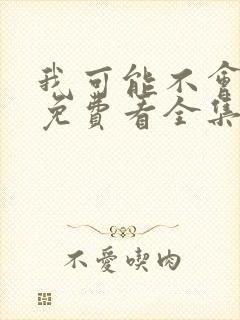 我可能不會
免費看全集
不愛喫肉